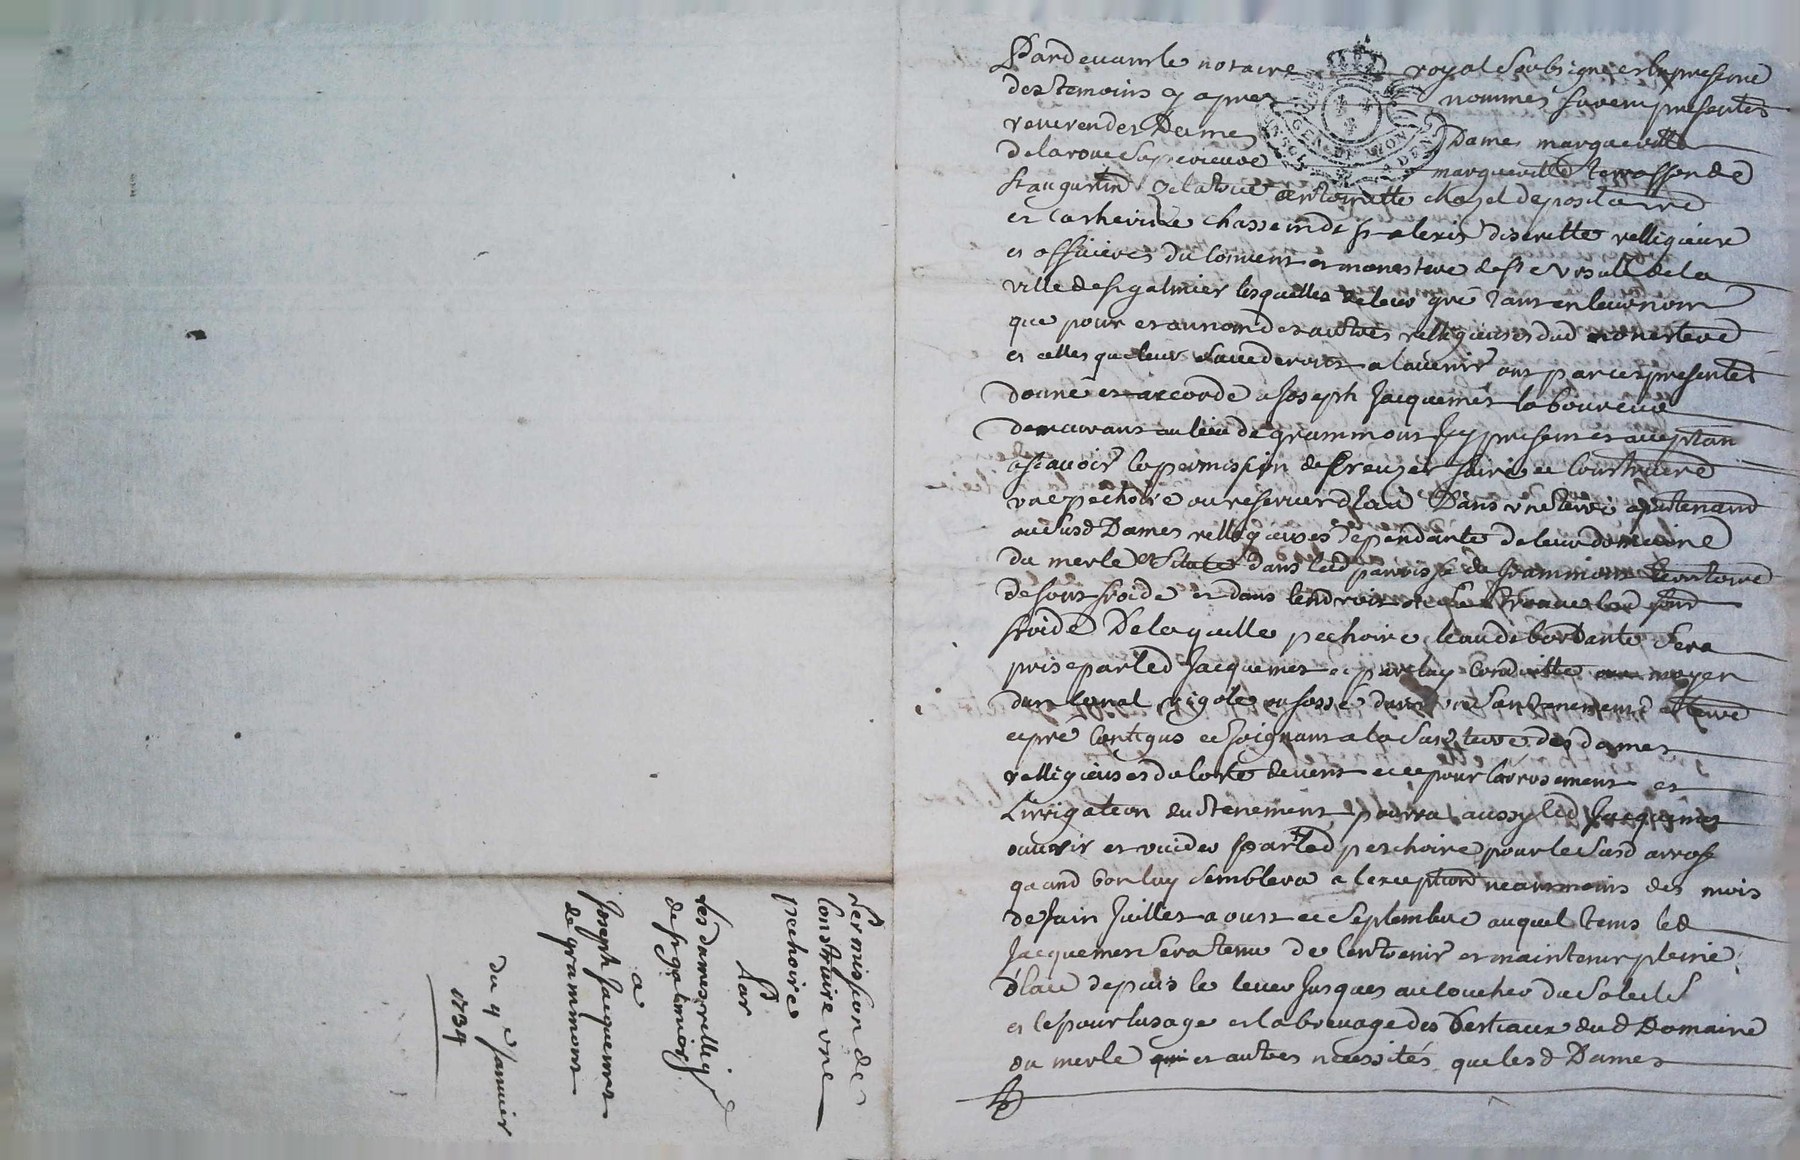 Pardevant le notaire royal soubsigné et la presence
des temoins cy apres nommés furent presentes
reverendes Dames Dame margueritte
delaroue superieure marguerite terrasson de
st augustin zelatrice antoinette chazel depositaire
et catherine chassein de st alexis discrette relligieuse
et officieres du couvent et monestere de ste Ursulle de la
ville de st galmier lesquelles de leur gré tant en leur nom
que pour et au nom des autres relligieuses dud monestere
et celles que leur succederont a lavenir ont par ces presentes
donné et accordé a Joseph Jacquemet laboureur
demeurant au lieu de grammont icy present et acceptan
assavoir la permission de creuzer faire et construire
une pechoire ou reservier dleau Dans une terre apartenand
aususd Dames relligieuses dependante de leur domaine
du merle et située dans lad parroisse de grammont territoire
de font froide et dans lendroit ou se trouve lad font
froide De laquelle pechoire leau debordante sera
prise par led Jacquemet et par luy conduitte au moyen
dun canal rigole ou fossé dans un sien tenement de terre
et pré contigus et joignant a la susd terre desd dames
relligieuses du coté de vent et ce pour larrosement et
Lirrigation dud tenement pourra aussy led Jacquemet
ouvrir et vuider lad peschoire pour le susd arrose
quand bon luy semblera a lexception neanmoins des mois
de Juin Juillet aoust et septembre auquel tems led
Jacquemet sera tenu de lentretenir et maintenir pleine
dleau depuis le lever jusques au coucher du soleil
et ce pour lusage et labreuvage des bestiaux dud Domaine
du merle et autres necessités que lesd Dames
Permission de
construire une
pechoire
Par
Les dames relligs
de st galmier
a
Joseph Jaquemet
de grammont
du 4e Janvier
1734